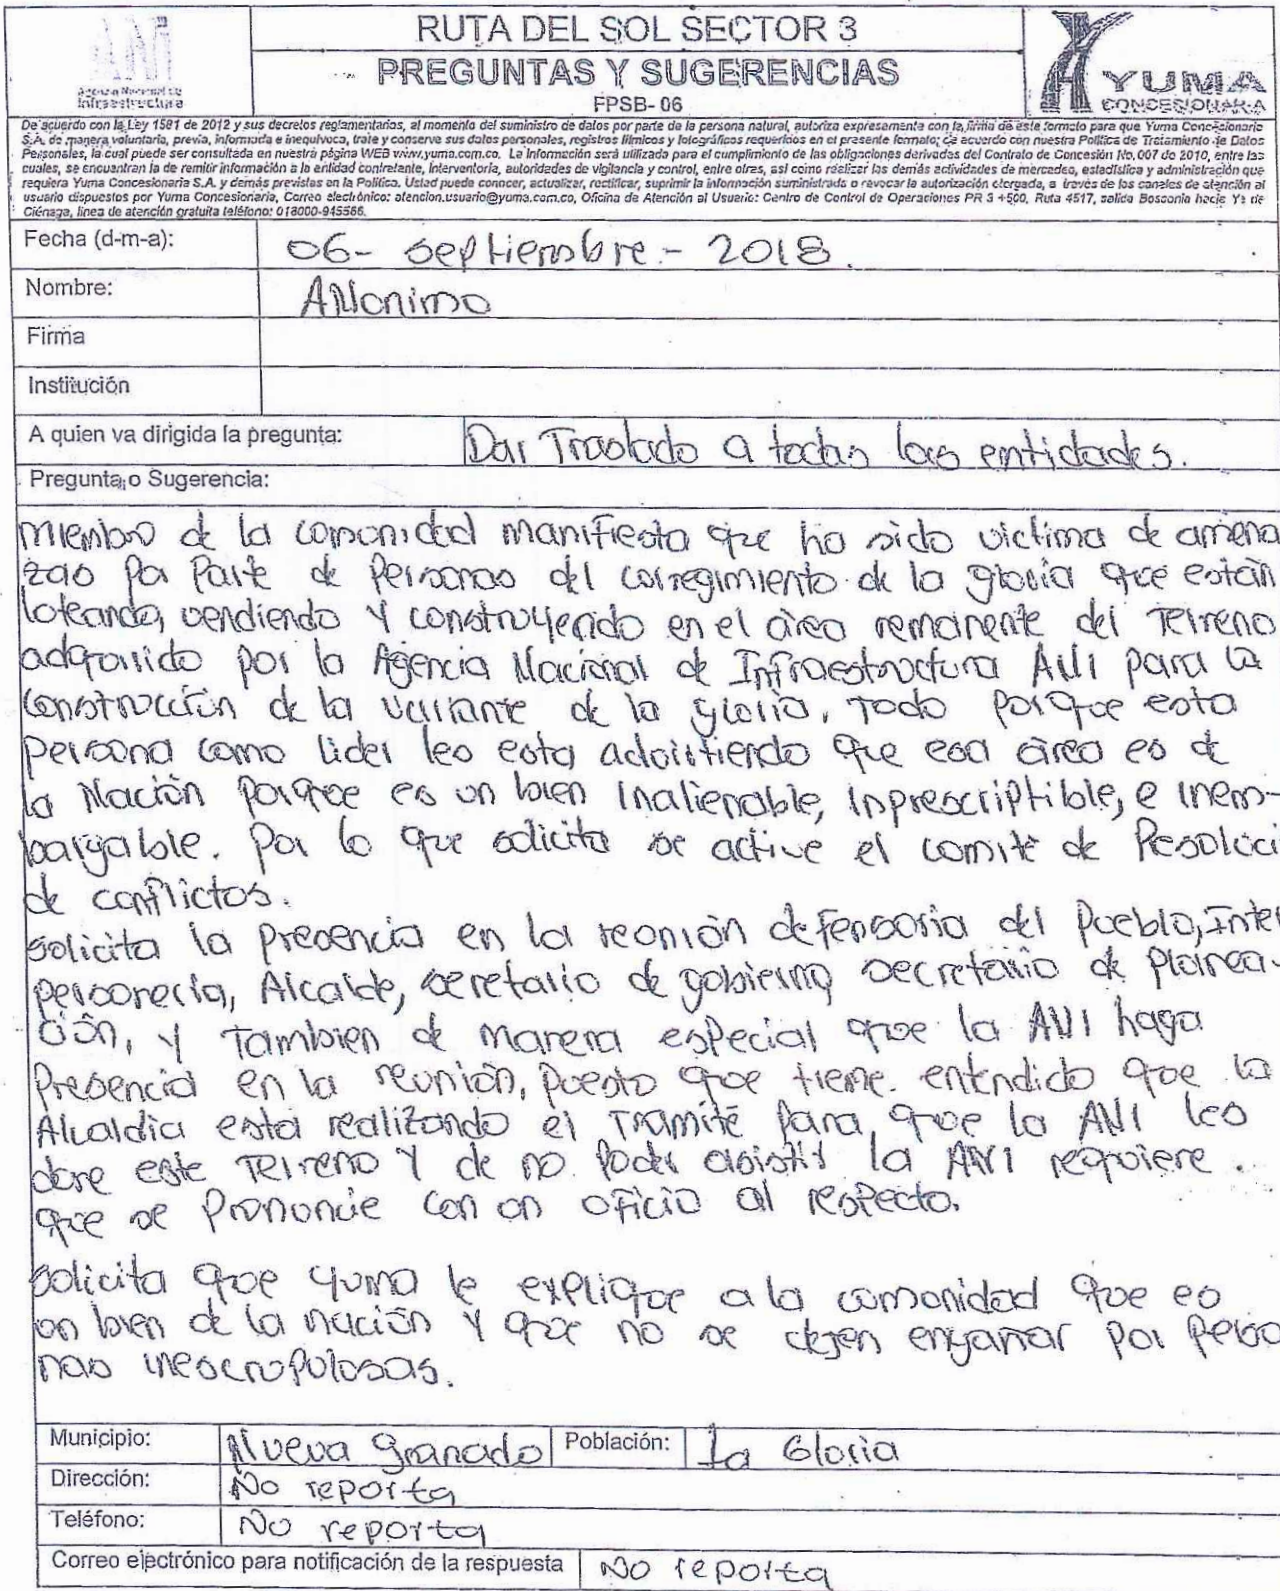 RUTA DEL SOL SECTOR 3
PREGUNTAS Y SUGERENCIAS
FPSB- 06
Infraestructura
YUMA
CONCESIONARIA
De acuerdo con la Ley 1581 de 2012 y sus decretos reglamentarios, al momento del suministro de datos por parte de la persona natural, autoriza expresamente con la firma de este formato para que Yuma Concesionaria
S.A. de manera voluntaria, previa, informada e inequívoca, trate y conserve sus datos personales, registros fílmicos y fotográficos requeridos en el presente formato; de acuerdo con nuestra Política de Tratamiento de Datos
Personales, la cual puede ser consultada en nuestra página WEB www.yuma.com.co. La información será utilizada para el cumplimiento de las obligaciones derivadas del Contrato de Concesión No. 007 de 2010, entre las
cuales, se encuentran la de remitir información a la entidad contratante, Interventoría, autoridades de vigilancia y control, entre otras, así como realizar las demás actividades de mercadeo, estadística y administración que
requiera Yuma Concesionaria S.A. y demás previstas en la Política. Usted puede conocer, actualizar, rectificar, suprimir la información suministrada o revocar la autorización otorgada, a través de los canales de atención al
usuario dispuestos por Yuma Concesionaria, Correo electrónico: atencion.usuario@yuma.com.co, Oficina de Atención al Usuario: Centro de Control de Operaciones PR 3 +500, Ruta 4517, salida Bosconia hacia Ye de
Ciénaga, línea de atención gratuita teléfono: 018000-945566.
Fecha (d-m-a): 06- septiembre - 2018.
Nombre: ANonimo
Firma
Institución
A quien va dirigida la pregunta: Dar Traslado a todas las entidades.
Pregunta o Sugerencia:
miembro de la comunidad manifiesta que ha sido victima de amena
zas por parte de personas del corregimiento de la gloria que están
loteando, vendiendo y construyendo en el área remanente del Terreno
adquirido por la Agencia Nacional de Infraestructura ANI para la
construcción de la variante de la gloria, todo porque esta
persona como lider les esta advirtiendo que esa área es de
la Nación porque es un bien Inalienable, Inprescriptible, e inem-
bargable. Por lo que solicita se active el comité de Resoluci
de conflictos.
solicita la presencia en la reunión defensoria del Pueblo, Inter
personería, Alcalde, seretario de gobierno, secretario de planea-
ción, y Tambien de manera especial que la ANI haga
Presencia en la reunión, puesto que tiene entendido que la
Alcaldia esta realizando el Tramité para que la ANI les
done este Terreno y de no poder asistir la ANI requiere.
que se Pronuncie con un oficio al respecto.
solicita que yuma le explique a la comunidad que es
un bien de la nación y que no se dejen enganar por perso
nas inescrupulosas.
Municipio: Nueva Granada Población: La Gloria
Dirección: No reporta
Teléfono: No reporta
Correo electrónico para notificación de la respuesta No reporta